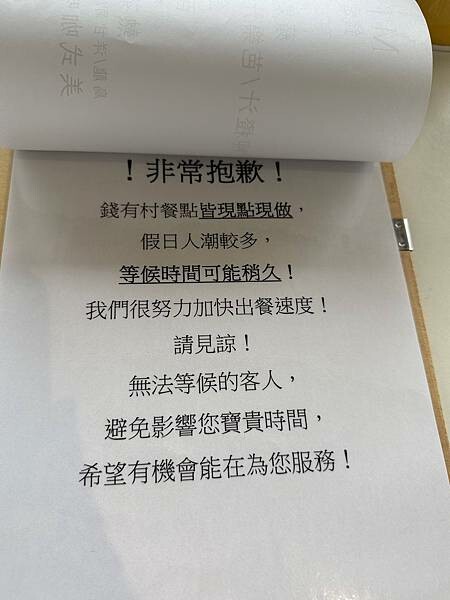 ！非常抱歉！
錢有村餐點皆現點現做，
假日人潮較多，
等候時間可能稍久！
我們很努力加快出餐速度！
請見諒！
無法等候的客人，
避免影響您寶貴時間，
希望有機會能在為您服務！